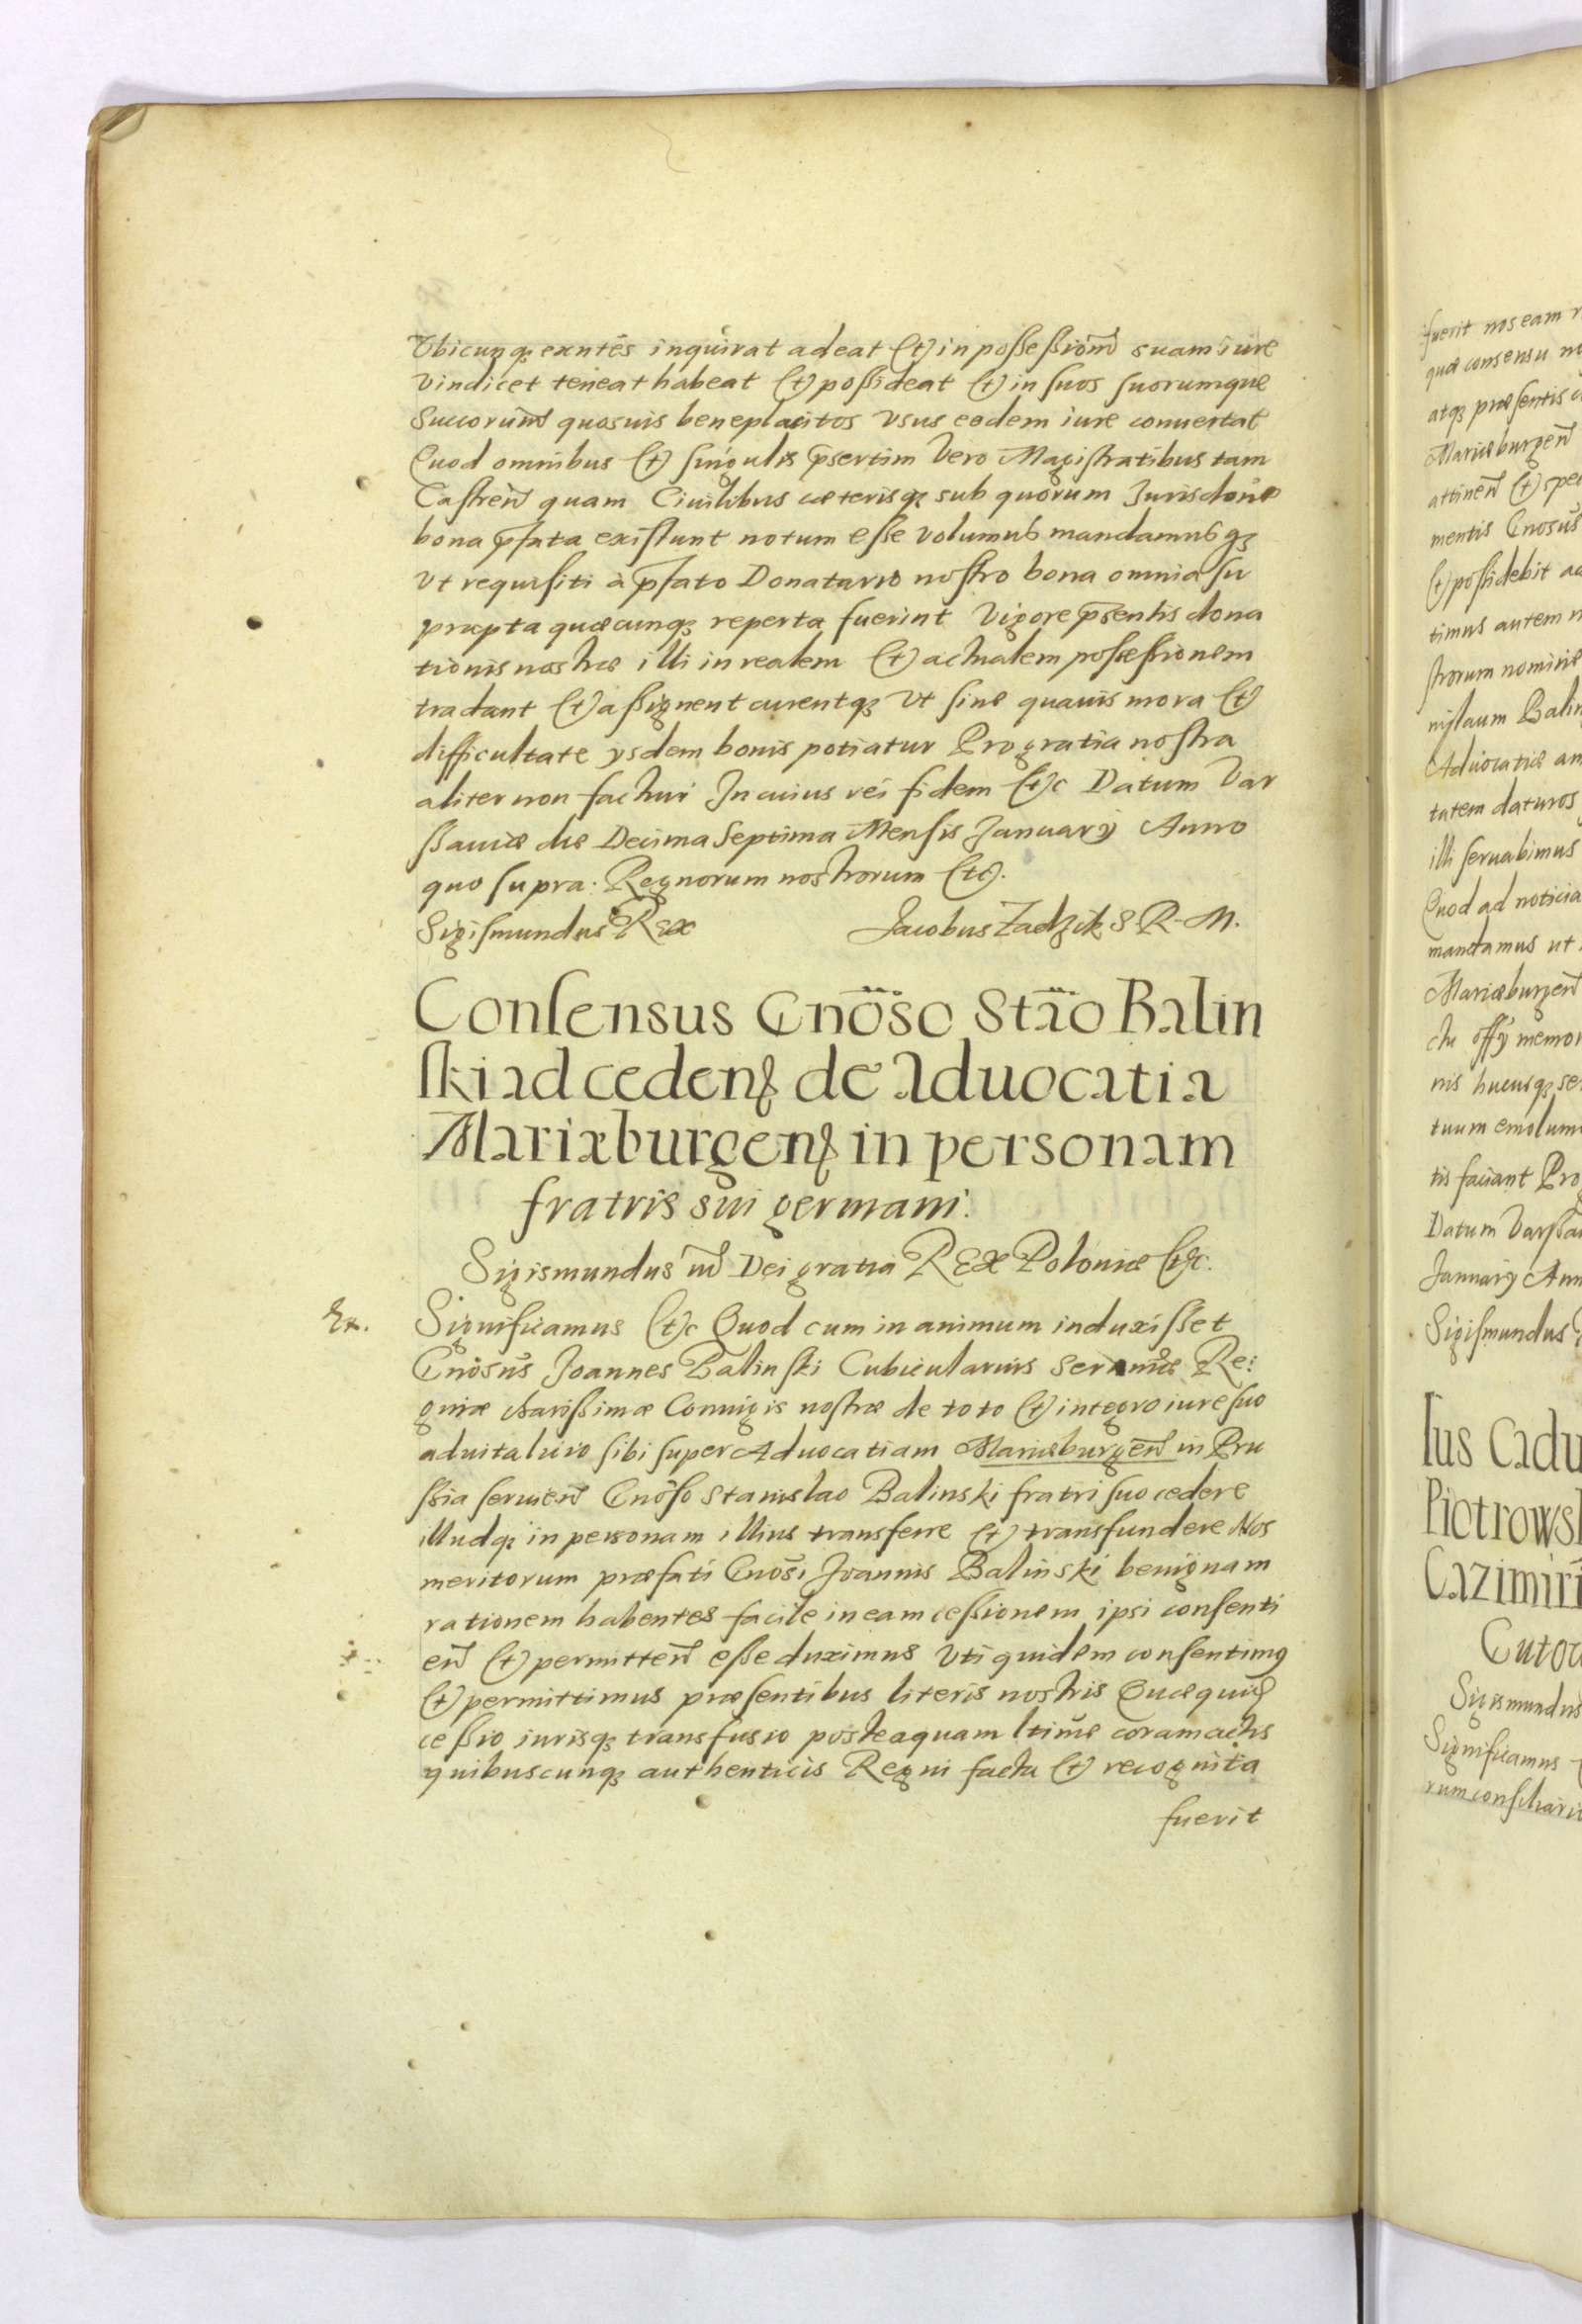 Vbicunq; exntēs inquirat adeat et in possessionē suam iure
vindicet teneat habeat et possideat et in suos suorumque
Succorum quosuis beneplacitos vsus eodem iure conuertat
Quod omnibus et singulis p̄sertim vero Magistratibus tam
Castren̄ quam Ciuilibus cæterisq; sub quorum Jurisdōne
bona p̄fata existunt notum esse volumus mandamusq;
vt requisiti à p̄fato Donatario nostro bona omnia su
prapta quæcunq; reperta fuerint vigore p̄sentis dona
tionis nostræ illi in realem et actualem possessionem
tradant et assignent curentq; vt sine quauis mora et
difficultate ysdem bonis potiatur Pro gratia nostra
aliter non facturi In cuius rei fidem etc Datum Var
ssauiæ die Decima Septima Mensis January Anno
quo supra. Regnorum nostrorum etc.
Sigismundus Rex Jacobus Zadzik S. R. M.
Consensus Gnoso Stao Balin
ski ad ceden̄ de Aduocatia
Mariæburgen̄ in personam
fratris sui germani.
Sigismundus iii Dei gratia REX Poloniæ etc.
Ex. Significamus etc Quod cum in animum induxisset
Gnosus Joannes Balinski Cubicularius Sermæ Re:
ginæ charissimæ Coniugis nostræ de toto et integro iure suo
aduitalitio sibi super Aduocatiam Mariæburgen̄ in Pru
ssia seruien̄ Gnoso Stanislao Balinski fratri suo cedere
illudq; in personam illius transferre et transfundere Nos
meritorum præfati Gnosi Joannis Balinski benignam
rationem habentes facile in eam cessionem ipsi consenti
en̄ et permitten̄ esse duximus vti quidem consentimus
et permittimus præsentibus literis nostris Quæ quid
cessio iurisq; transfusio posteaquam ltime coram actis
quibuscunq; authenticis Regni facta et recognita
fuerit
fuerit nos eam
quæ consensu
atq; præsentis
Mariæburgen̄
attinen̄ et
mentis Gnosus
et possidebit
timus autem
strorum nomine
nislaum Balin
Aduocatiæ
tatem daturos
illi seruabimus
Quod ad noticia
mandamus ut
Mariæburgen̄
offy
nis hucusq;
tuum
tis faciant Pro
Datum Varssa
January Ann
Sigismundus
Ius Cadu
Piotrows
Cazimiri
Sigismundus
Significamus